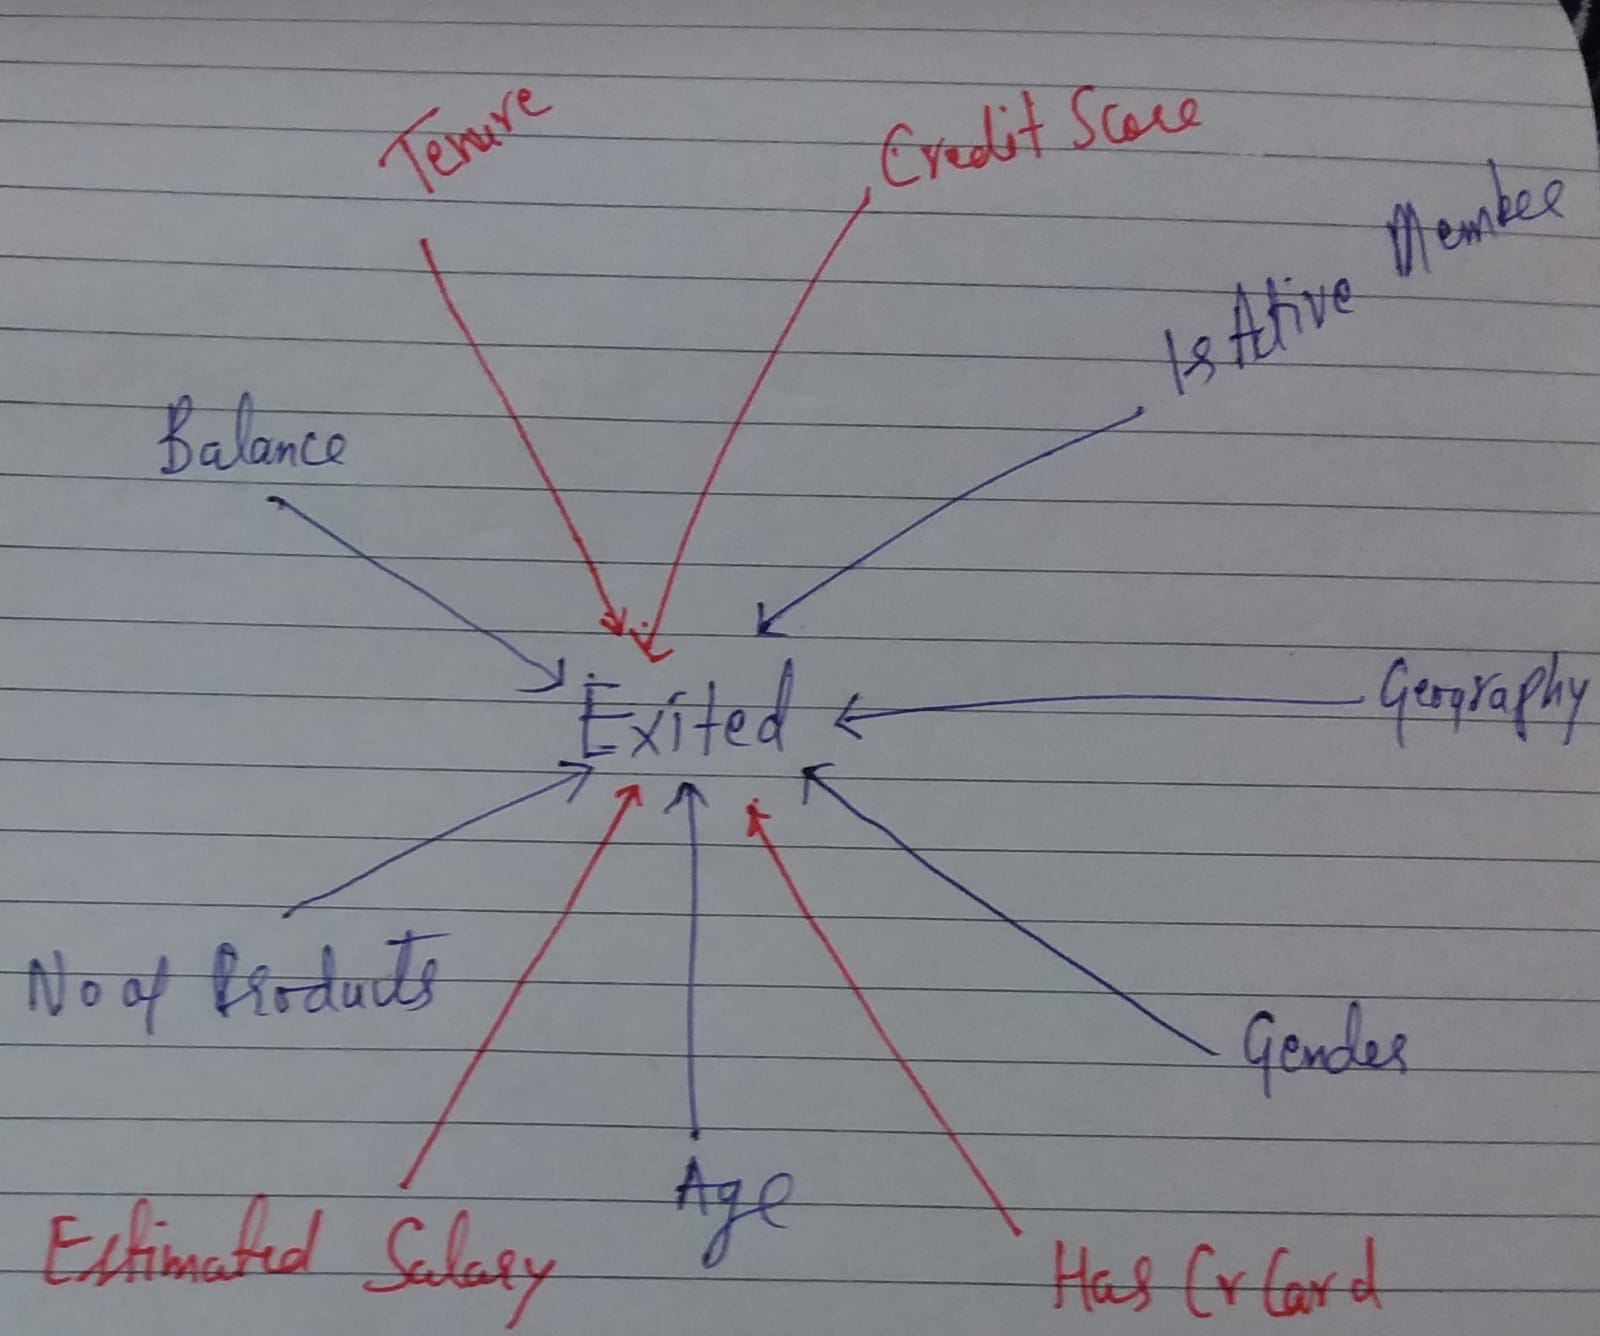 Tenure
Credit Score
Is Ative Member
Balance
Exited
Geography
No of Products
Gender
Age
Estimated Salary
Has Cr Card